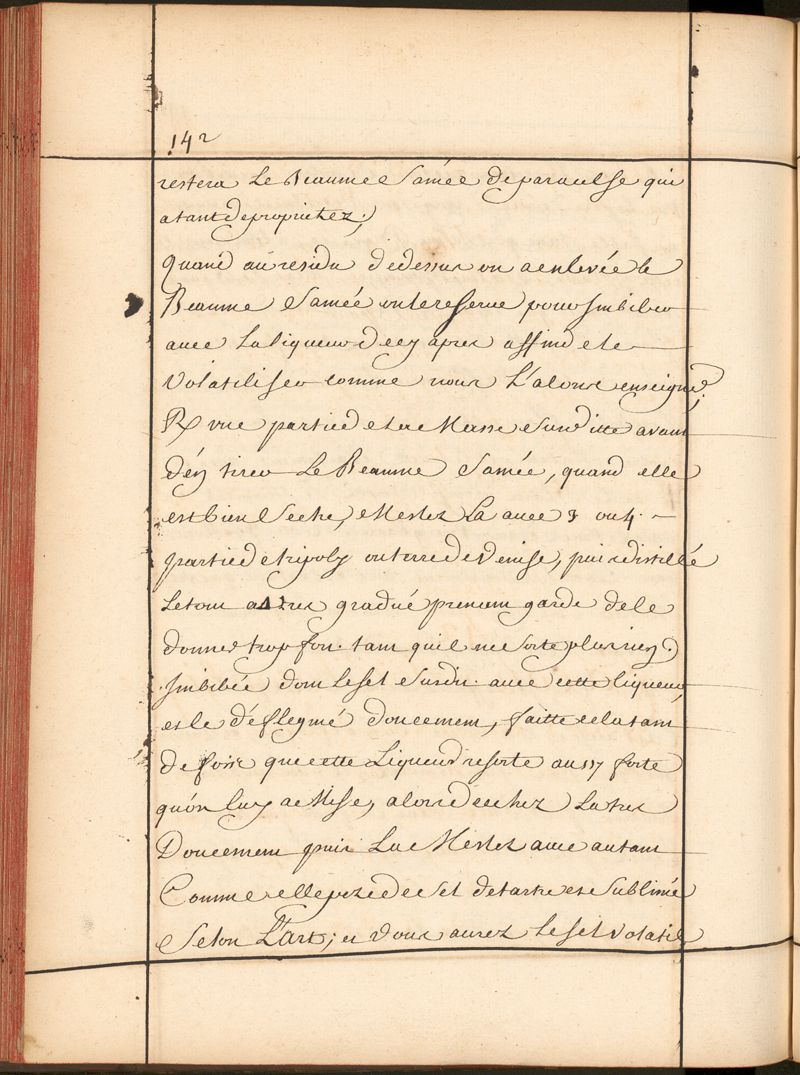 142
restera Le Beaume Samée deparacelse qui
atant deproprietez;
Quand au residu dedessus on a enlevée le
Beaume Samée on le reserve pour Jmbiber
avec La liqueur decy apres affin de le
Volatiliser comme nous L'alons enseigner.
R vne partie de La Masse Susditte avant
d'en tirer Le Beaume Samée, quand elle
est bien Seche, Meslez La avec 3 ou 4.
partie de tripoly ou terre de Venise, puis distillé
Le tout gradué prenant garde de le
donner trop fort. tant qu'il ne sorte plus rien.
Jmbibée dont le sel Susdit avec cette liqueur,
et le déflegmé doucement, faitte cela tant
de fois que cette Liqueur resorte aussy forte
qu'on luy a Mise, alors dechez La tres
Doucement puis La Meslez avec autant
Comme elle poize de Sel de tartre et Sublimé
Selon L'art; et Vous aurez Le sel Volatil